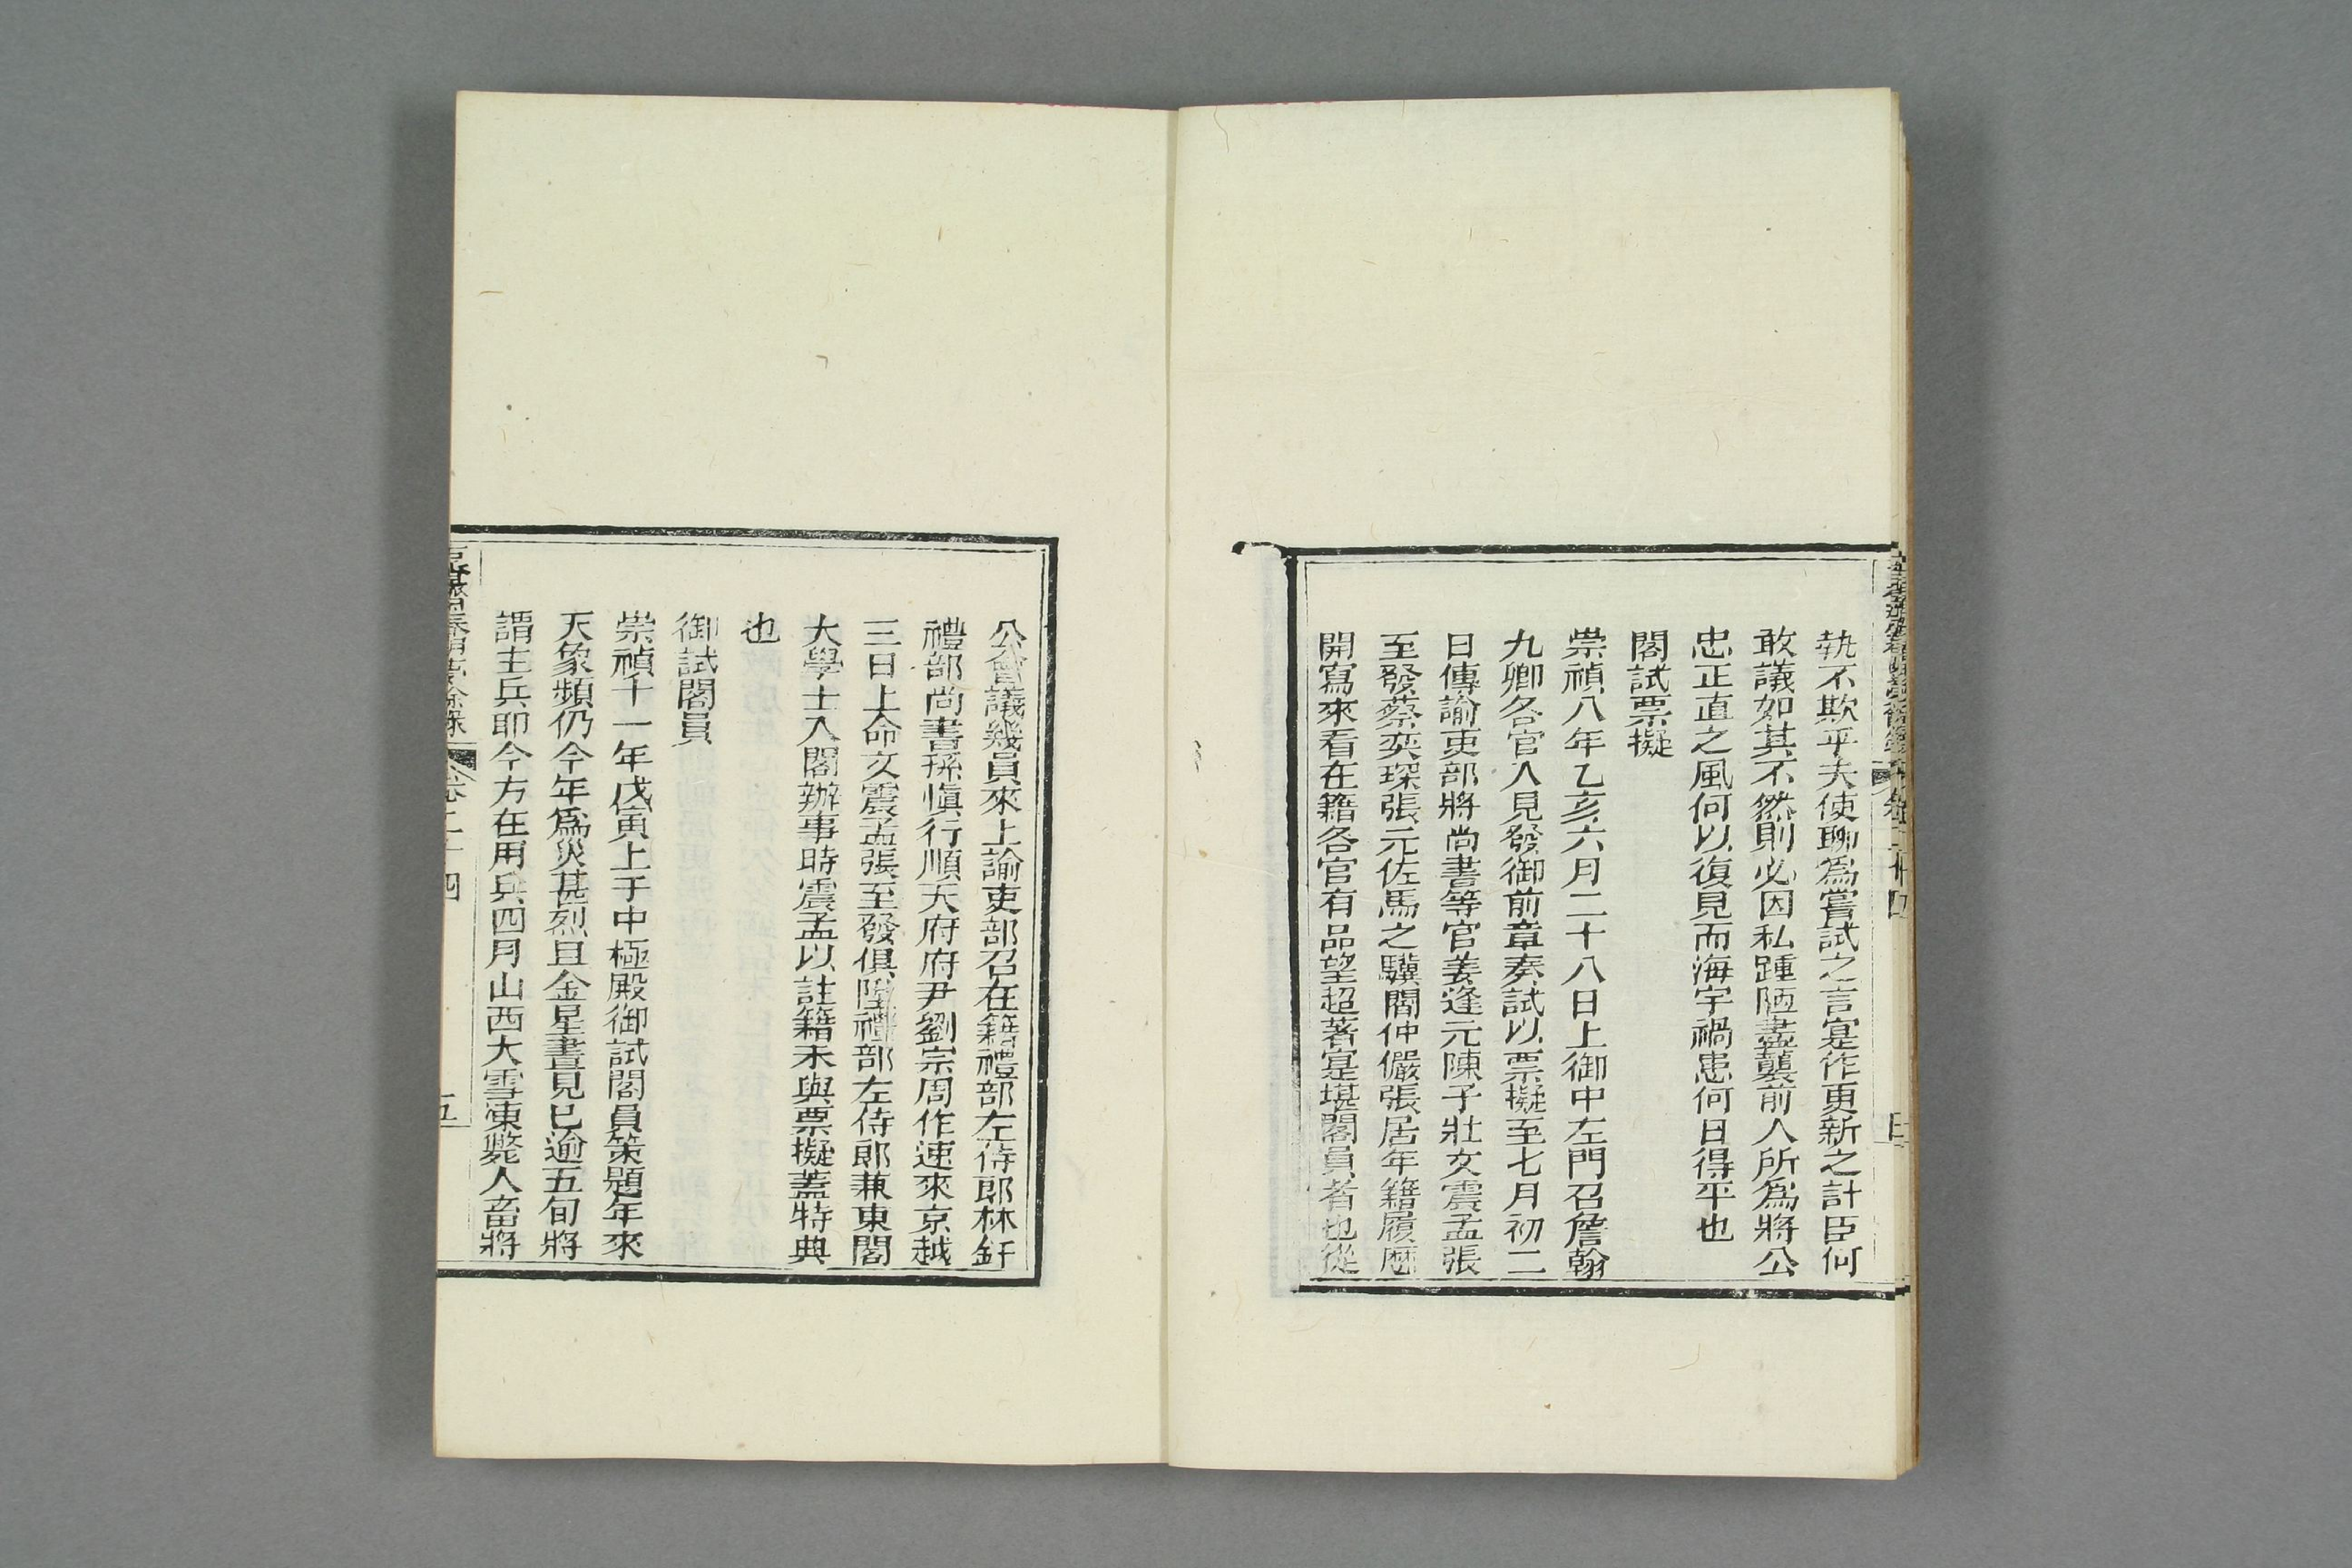 執不欺乎夫使聊爲嘗試之言寔作更新之計臣何
敢議如其不然則必因私踵陋盡襲前人所爲將公
忠正直之風何以復見而海宇禍患何日得平也
閣試票擬
崇禎八年乙亥六月二十八日上御中左門召詹翰
九卿各官入見發御前章奏試以票擬至七月初二
日傳諭吏部將尚書等官姜逢元陳子壯文震孟張
至發蔡奕琛張元佐馬之驥閻仲儼張居年籍履歷
開寫來看在籍各官有品望超著寔堪閣員者也從
公會議幾員來上諭吏部召在籍禮部左侍郎林釬
禮部尚書孫愼行順天府府尹劉宗周作速來京越
三日上命文震孟張至發俱陞禮部左侍郎兼東閣
大學士入閣辦事時震孟以註籍未與票擬蓋特典
也
御試閣員
崇禎十一年戊寅上于中極殿御試閣員策題年來
天象頻仍今年爲災甚烈且金星晝見已逾五旬將
謂主兵耶今方在用兵四月山西大雪凍斃人畜將